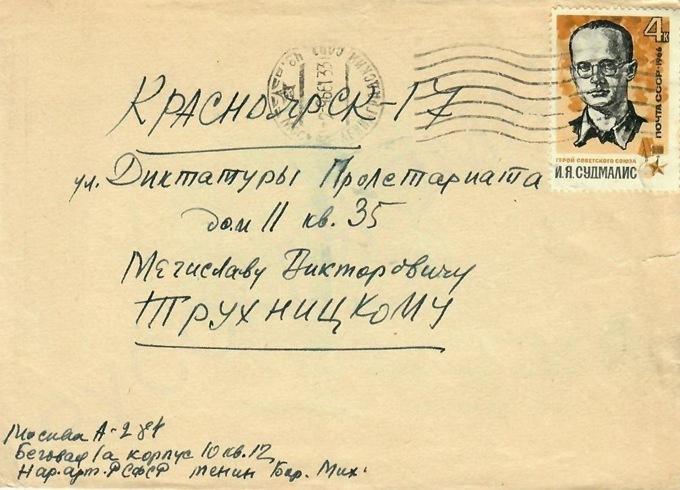 4к
ПОЧТА СССР·1966
ГЕРОЙ СОВЕТСКОГО СОЮЗА
И.Я.СУДМАЛИС
КРАСНОЯРСК-17
ул. Диктатуры Пролетариата
дом 11 кв. 35
Мечиславу Викторовичу
ТРУХНИЦКОМУ
Москва А-284
Беговая 1а корпус 10 кв. 12
Нар.арт.РСФСР Тенин Бор. Мих.